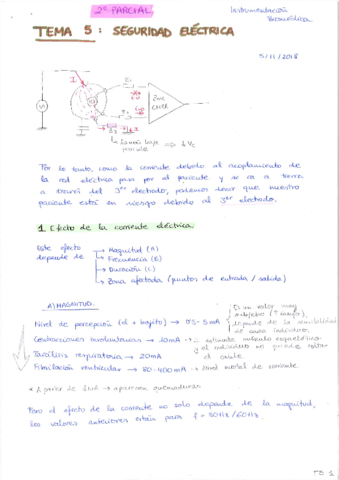 2º PARCIAL
Instrumentación
Biomédica
TEMA 5: SEGURIDAD ELÉCTRICA
5/11/2018
Por lo tanto, como la corriente debido al acoplamiento de
la red eléctrica pasa por el paciente y se va a tierra
a través del 3er electrodo, podemos decir que nuestro
paciente está en riesgo debido al 3er electrodo.
1. Efecto de la corriente eléctrica.
Este efecto
depende de
→ Magnitud (A)
→ Frecuencia (B)
→ Duración (C)
→ Zona afectada (puntos de entrada / salida)
A) MAGNITUD.
Nivel de percepción (el + bajito) → 0'5-5mA
Es un valor muy
subjetivo
depende de la sensibilidad
de cada individuo.
Contracciones involuntarias → 10mA →
y el individuo no puede soltar
el cable
Parálisis respiratoria → 20mA
Fibrilación ventricular → 80-400mA → nivel mortal de corriente
* A partir de → aparecen quemaduras
Pero el efecto de la corriente no solo depende de la magnitud,
los valores anteriores están para f = 50Hz/60Hz.
T5-1